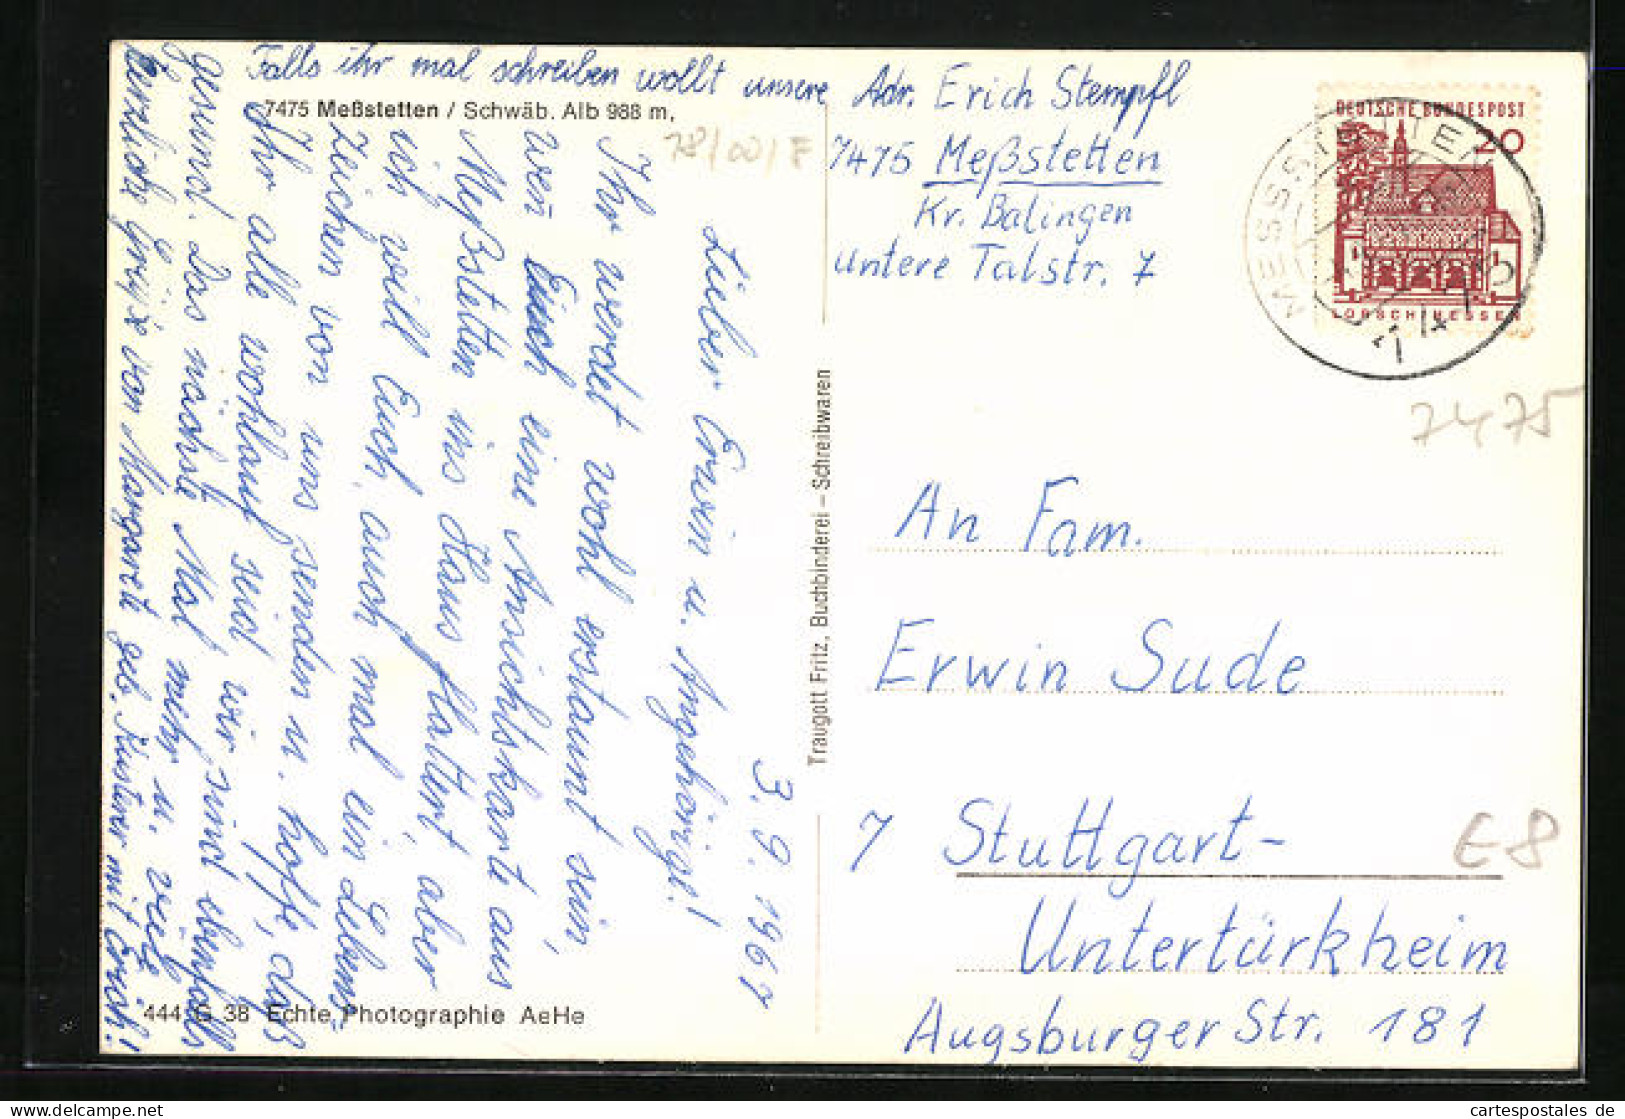 Falls ihr mal schreiben wollt unsere Adr. Erich Stempfl
7475 Meßstetten
Kr. Balingen
untere Talstr. 7
7475 Meßstetten / Schwäb. Alb 988 m,
78/00/F
3.9.1967
Lieber Erwin u. Angehörige!
Ihr werdet wohl erstaunt sein,
wen Euch eine Ansichtskarte aus
Meßstetten ins Haus flattert aber
ich will Euch auch mal ein Lebens-
zeichen von uns senden u. hoffe, daß
Ihr alle wohlauf seid wir sind ebenfalls
gesund. Das nächste Mal mehr u. viele
herzliche Grüße von Margarete geb. mit Erich!
Traugott Fritz, Buchbinderei – Schreibwaren
444 G 38 Echte Photographie AeHe
DEUTSCHE BUNDESPOST
20
LORSCH/HESSEN
MESSSTETTEN
7475
An Fam.
Erwin Sude
7 Stuttgart-
E8
Untertürkheim
Augsburger Str. 181
www.cartespostales.eu
cartespostales de